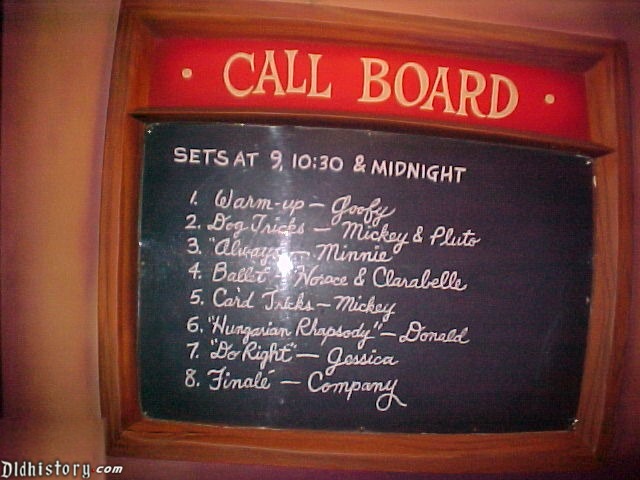 • CALL BOARD •
SETS AT 9, 10:30 & MIDNIGHT
1. Warm-up — Goofy
2. Dog Tricks — Mickey & Pluto
3. "Always" — Minnie
4. Ballet — Horace & Clarabelle
5. Card Tricks — Mickey
6. "Hungarian Rhapsody" — Donald
7. "Do Right" — Jessica
8. Finalé — Company
Dldhistory.com